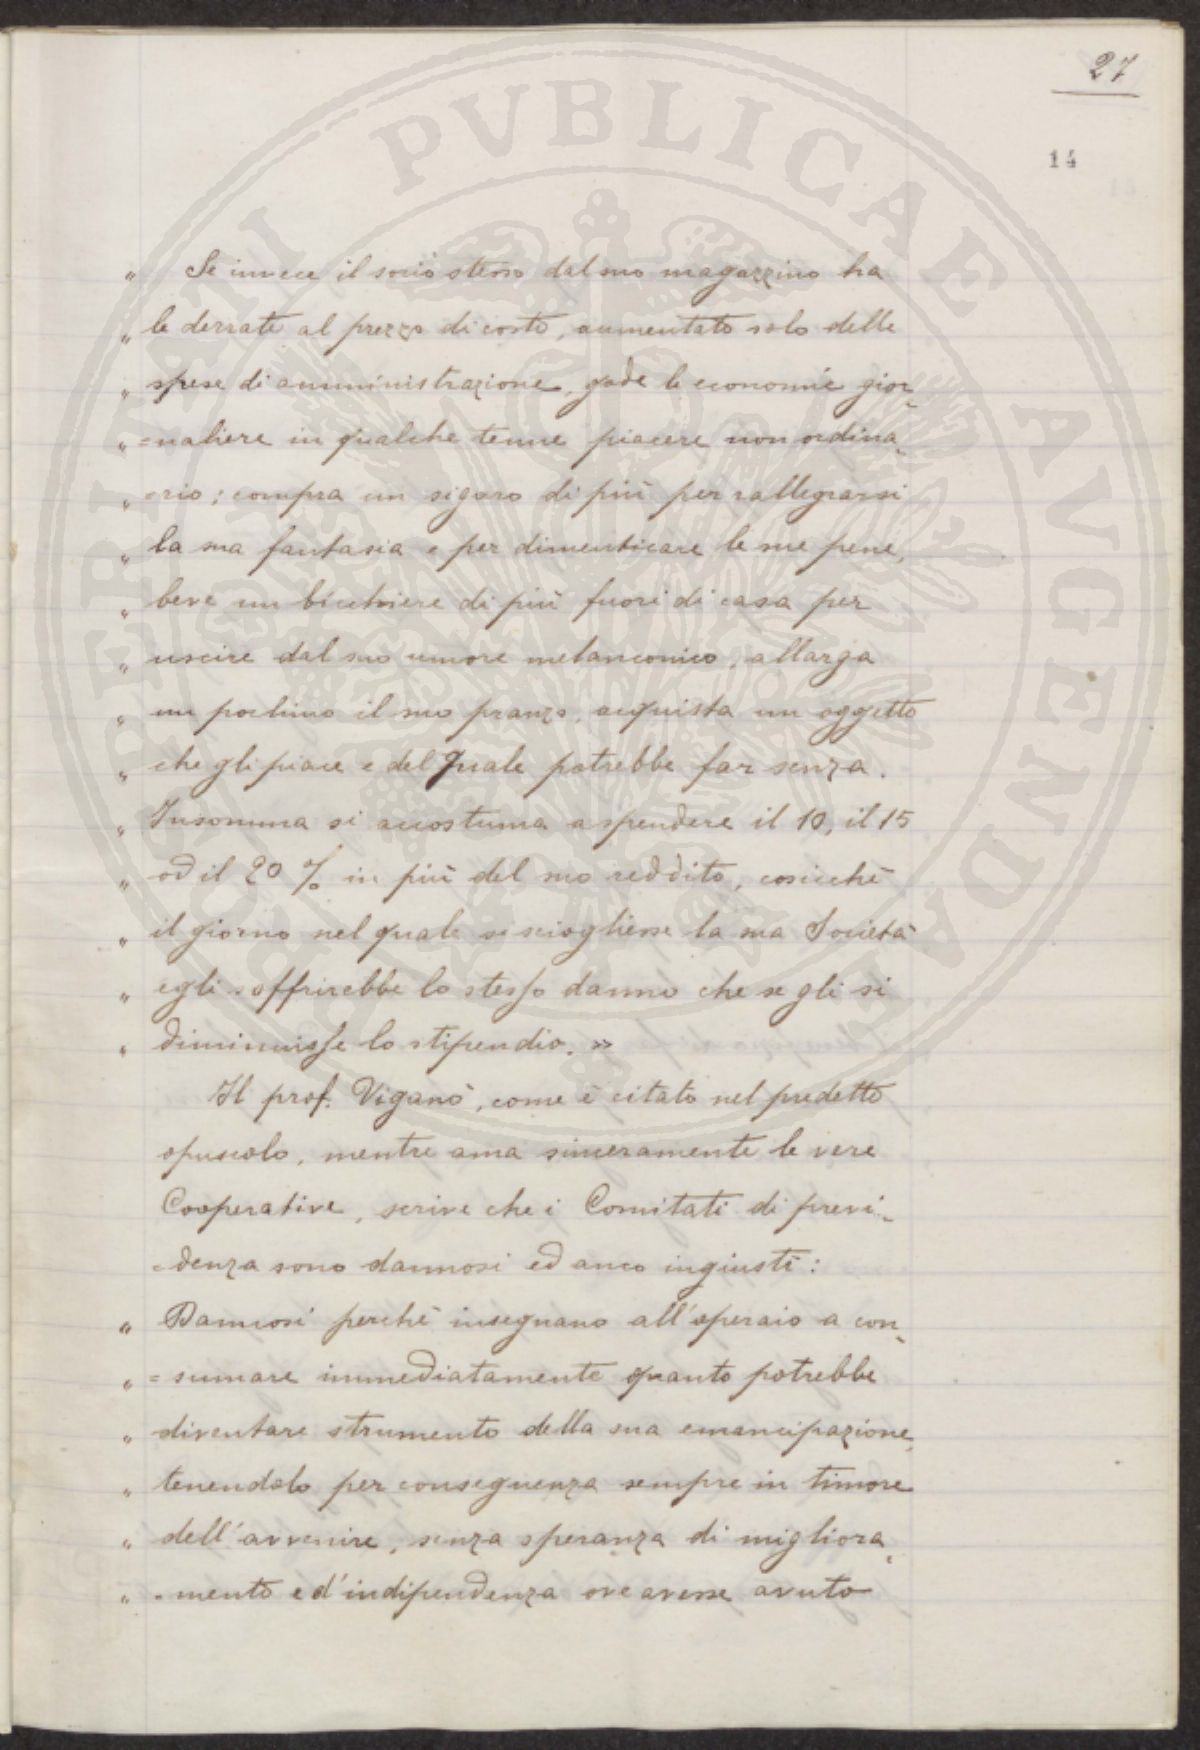 27
14
" Se invece il socio stesso dal suo magazzino ha
" le derrate al prezzo di costo, aumentato solo delle
" spese di amministrazione, gode le economie gior„
" =naliere in qualche tenue piacere non ordina„
" =rio; compra un sigaro di più per rallegrarsi
" la sua fantasia e per dimenticare le sue pene,
" beve un bicchiere di più fuori di casa per
" uscire dal suo umore melanconico, allarga
" un pochino il suo pranzo, acquista un oggetto
" che gli piace e del quale potrebbe far senza.
" Insomma si accostuma a spendere il 10, il 15
" od il 20 % in più del suo reddito, cosicchè
" il giorno nel quale si sciogliesse la sua Società
" egli soffrirebbe lo stesso danno che se gli si
" diminuisse lo stipendio. »
Il prof. Viganò, come è citato nel predetto
opuscolo, mentre ama sinceramente le vere
Cooperative, scrive che i Comitati di previ„
=denza sono dannosi ed anco ingiusti:
" Dannosi perchè insegnano all'operaio a con„
" =sumare immediatamente quanto potrebbe
" diventare strumento della sua emancipazione,
" tenendolo per conseguenza sempre in timore
" dell'avvenire, senza speranza di migliora„
" =mento e d'indipendenza ove avesse avuto
ASPERITATI PVBLICAE AVGENDAE